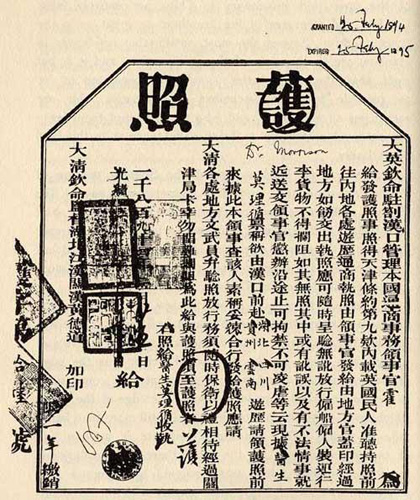 GRANTED 25 Feby. 1894
EXPIRED 25 Feby 1895
護照
Dr. Morrison
大英欽命駐劄漢口管理本國通商事務領事官霍 為
給發護照事照得天津條約第九欵內載英國民人准聽持照前
往內地各處遊歷通商執照由領事官發給由地方官蓋印經過
地方如飭交出執照應可隨時呈驗無訛放行僱船僱人裝運行
李貨物不得攔阻如其無照其中或有訛誤以及有不法情事就
近送交領事官懲辦沿途止可拘禁不可凌虐等云現據醫生
莫理循稟稱欲由漢口前赴湖北四川貴州雲南遊歷請領護照前
來據此本領事查該人素稱妥練合行發給護照應請
大清各處地方文武員弁驗照放行務須隨時保衛以禮相待經過關
津局卡幸勿留難攔阻為此給與護照須至護照者
右照給醫生莫理循收執
一千八百九十
光緒 日 給
大清欽命 湖北 江漢關 漢黃德道 加印
限一年繳銷
護